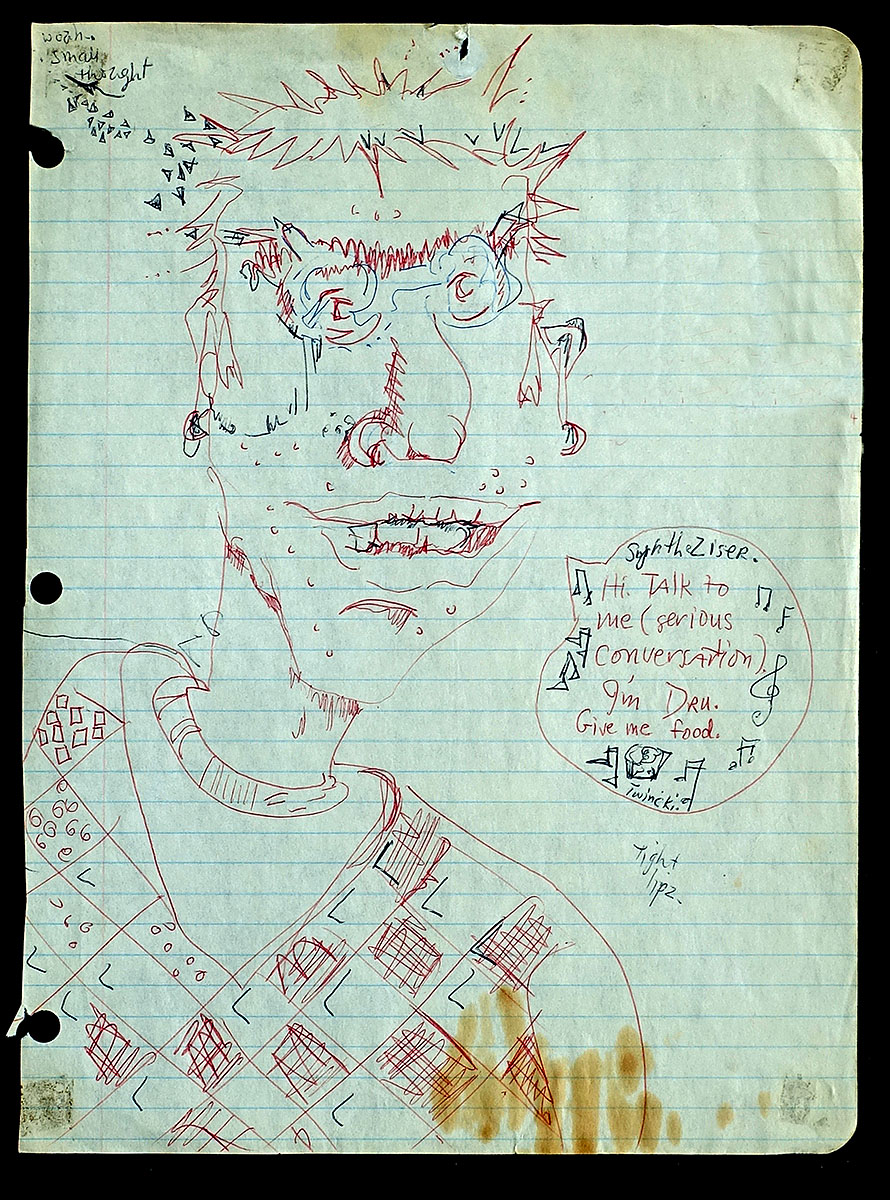 Small
thought
Hi. TALK to
me (serious
conversation).
I'm DRU.
Give me food.
Twincki.
Tight
lipz.